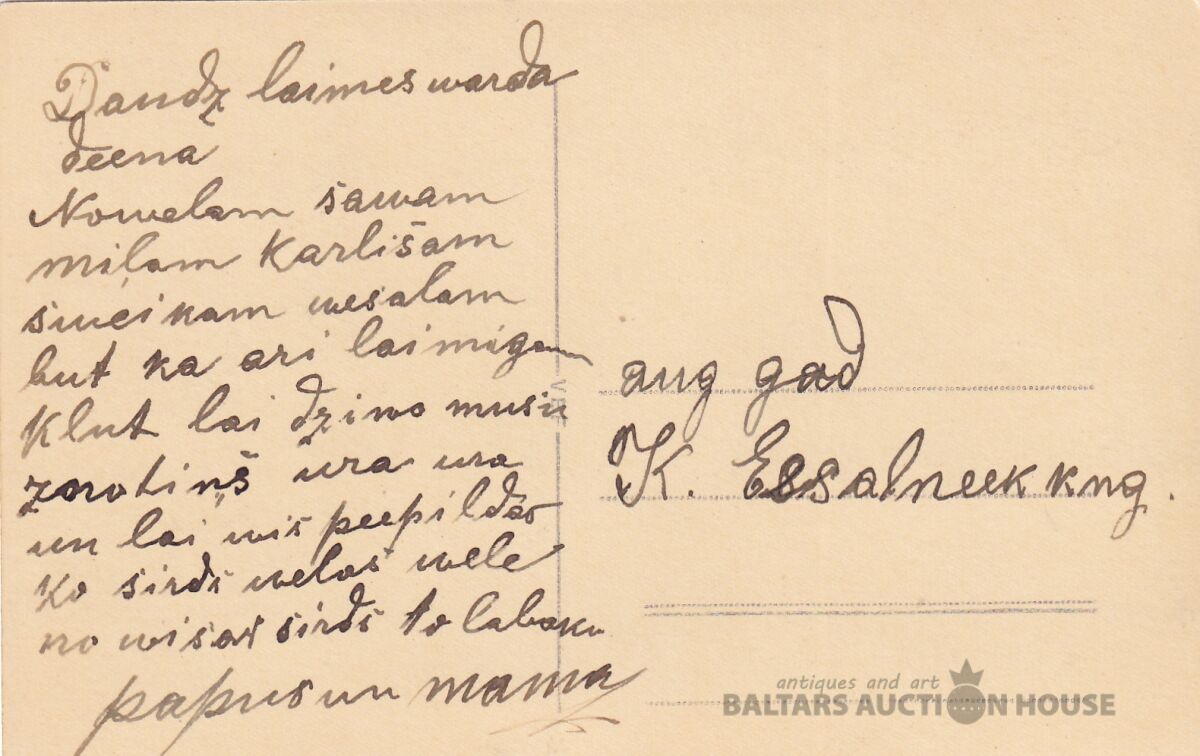 Daudz laimes warda
deena
Nowelam sawam
miļam Karlišam
sweikam wesalam
but ka ari laimigam
Klut lai dziwo musu
znotiņš ura ura
un lai wis peepildas
Ko sirds welas wele
no wisas sirds to labaku
papus un mama
aug gad
K. Essalneek kng.
antiques and art
BALTARS AUCTION HOUSE